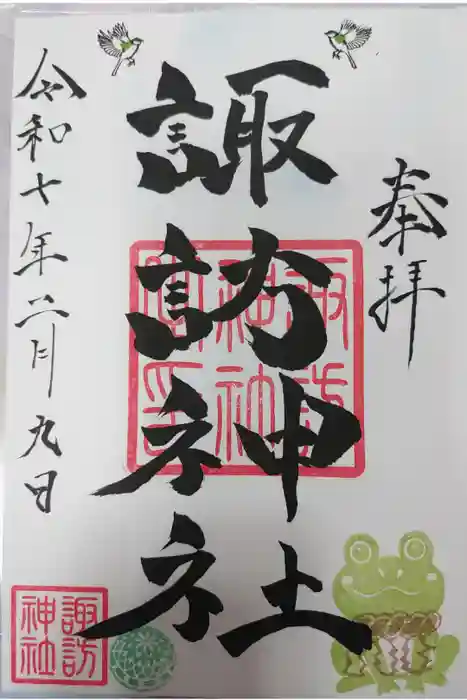 奉拝
諏訪神社
令和七年二月九日
諏訪
神社